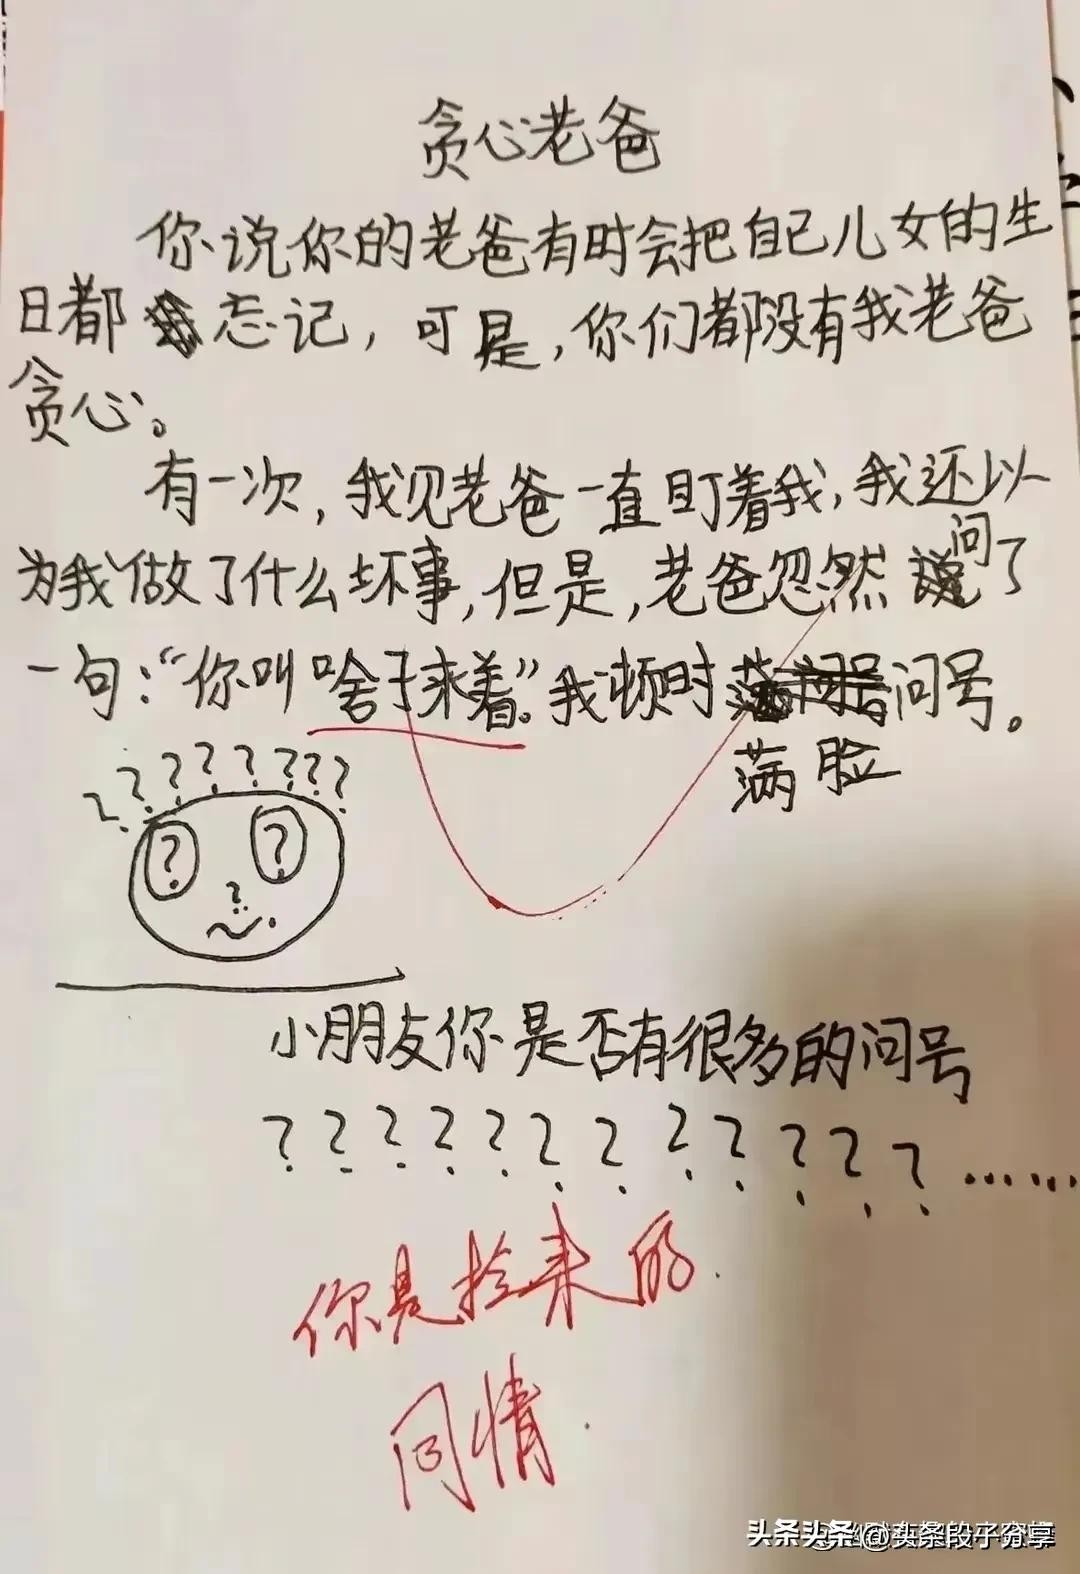 贪心老爸
你说你的老爸有时会把自己儿女的生
日都忘记，可是，你们都没有我老爸
贪心。
有一次，我见老爸一直盯着我，我还以
为我做了什么坏事，但是，老爸忽然问了
一句：“你叫啥子来着”。我顿时满脸问号。
???????
? ? ?
小朋友你是否有很多的问号
????????????……
你是捡来的
同情
头条头条 @头条段子分享